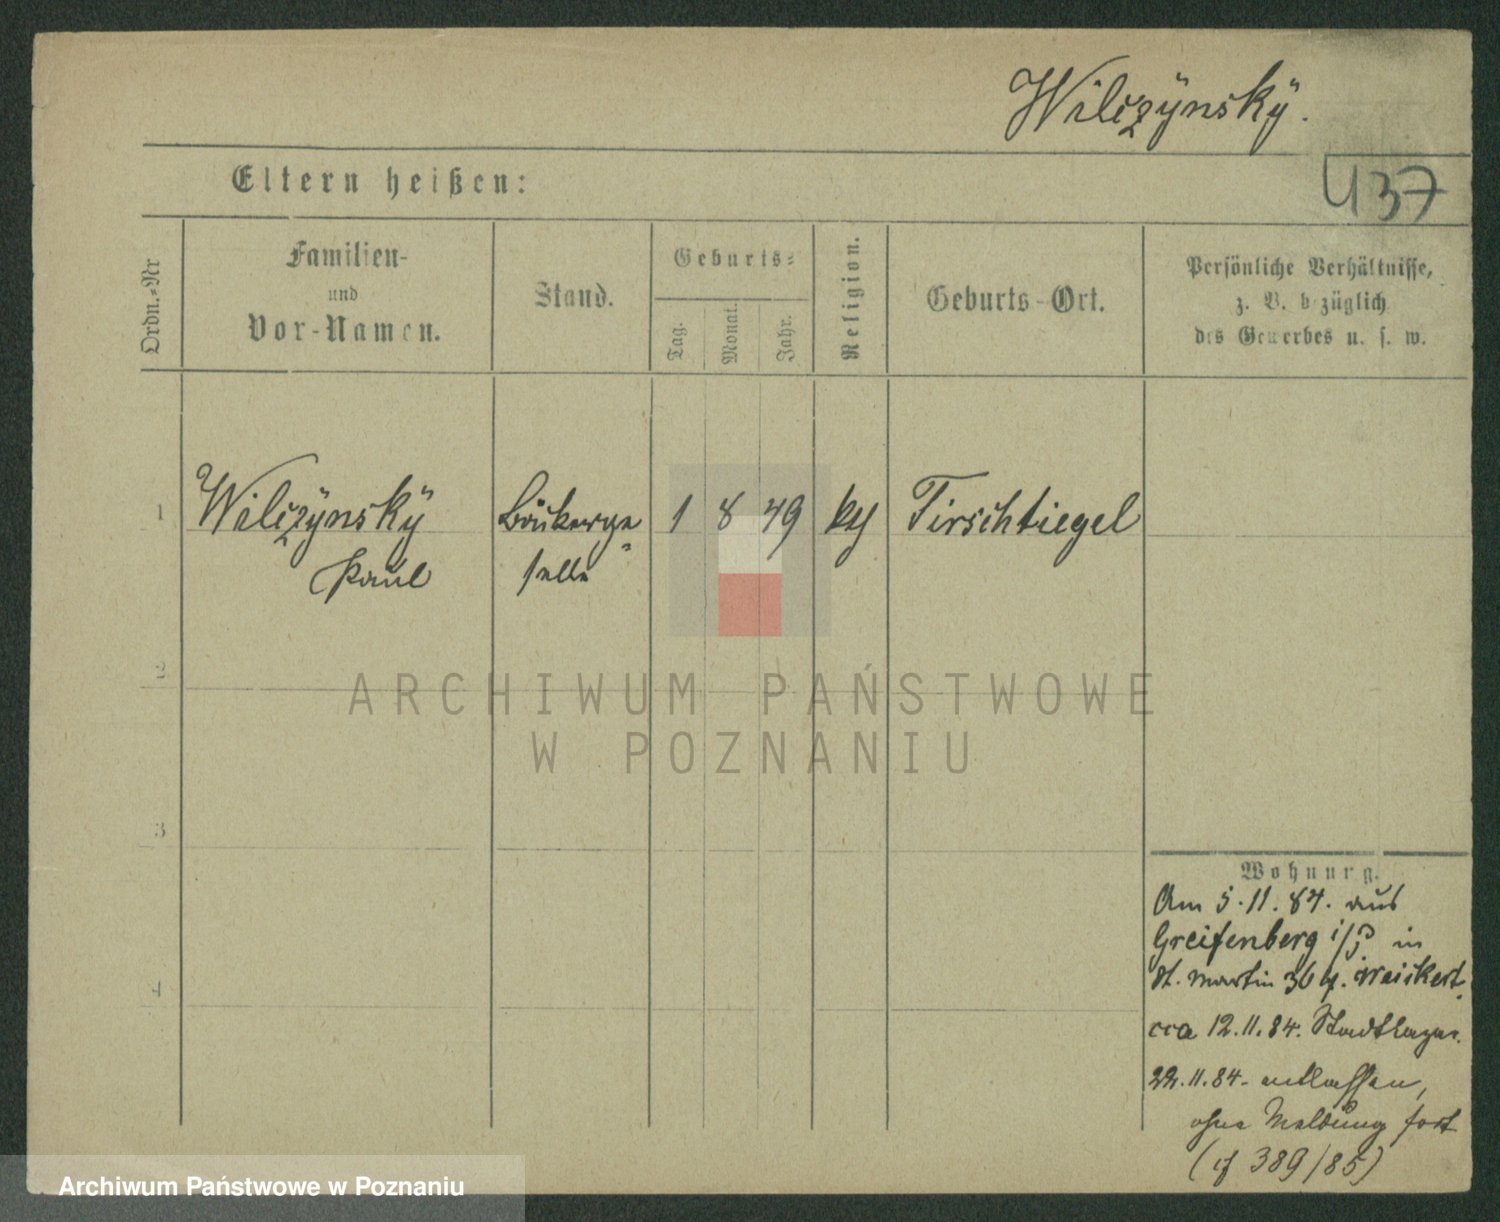 Wilczÿnskÿ.
437
Eltern heißen:
Ordn.-Nr
Familien-
und
Vor-Namen.
Stand.
Geburts-
Tag.
Monat.
Jahr.
Religion.
Geburts-Ort.
Persönliche Verhältnisse,
z. B. bezüglich
des Gewerbes u. s. w.
1 Wilczÿnskÿ Bäckerge 1 8 49 kth Tirschtiegel
Paul selle
2
3
4
Wohnung.
Am 5.11.84. aus
Greifenberg i/P in
St. Martin 36 b.
cca 12.11.84. Stadtlazar.
22.11.84. entlassen,
ohne Meldung fort
(cf 389/85)
ARCHIWUM PAŃSTWOWE
W POZNANIU
Archiwum Państwowe w Poznaniu